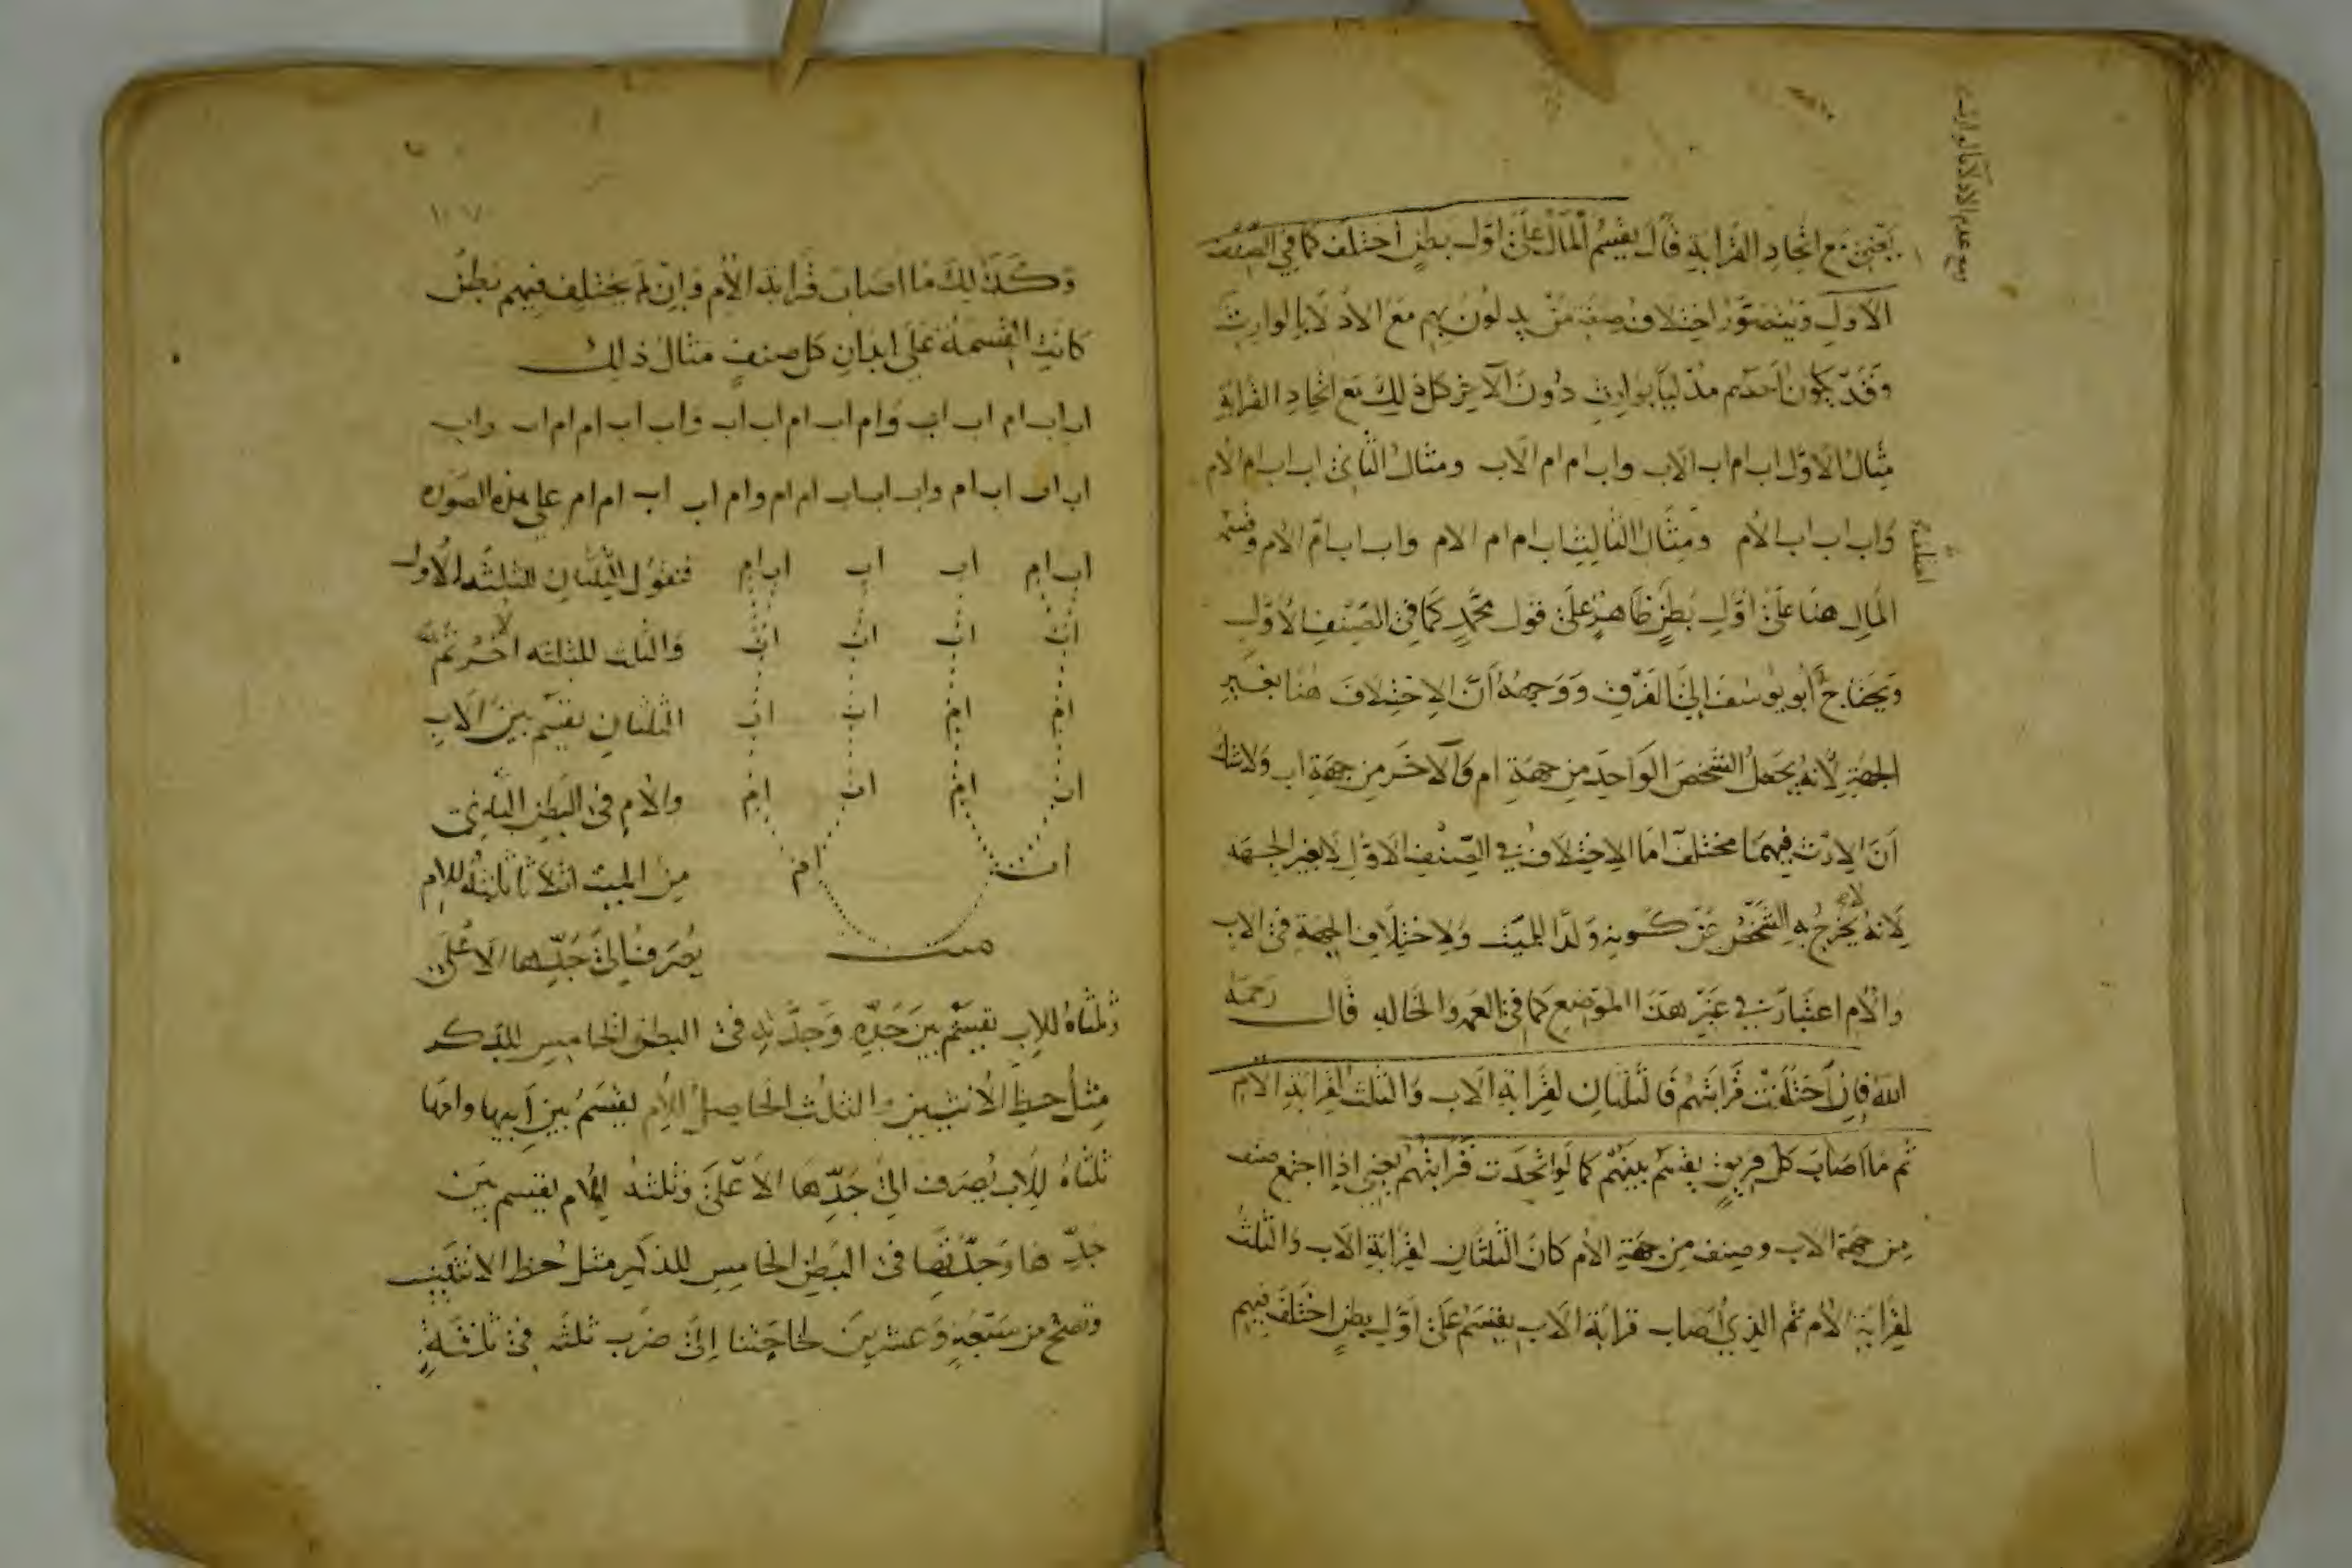 يعني مع اتحاد القرابة قال يقسم المال على اول بطن اختلف كما في الصنف
الاول ويتصور اختلاف صفة من يدلون بهم مع الادلا بالوارث
وقد يكون احدهم مدليا بوارث دون الآخر كل ذلك مع اتحاد القرابة
مثال الاول اب ام اب الاب واب ام ام الاب ومثال الثاني اب اب ام الام
واب اب اب الام ومثال الثالث اب ام ام الام واب اب ام الام وقسمة
المال هنا على اول بطن ظاهر على قول محمد كما في الصنف الاول
ويحتاج ابو يوسف الى الفرق ووجهه ان الاختلاف هنا بغير
الجهة لانه يجعل الشخص الواحد من جهة ام والآخر من جهة اب ولا شك
ان الارث فيهما مختلف اما الاختلاف في الصنف الاول لا بغير الجهه
لانه لا يخرج به الشخص عن كونه ولد الميت ولاختلاف الجهة في الاب
والام اعتبار في غير هذا الموضع كما في العمه والخاله قال رحمه
الله فان اختلفت قرابتهم فالثلثان لقرابة الاب والثلث لقرابة الام
ثم ما اصاب كل فريق يقسم بينهم كما لو اتحدت قرابتهم يعني اذا اجتمع صنف
من جهة الاب وصنف من جهة الام كان الثلثان لقرابة الاب والثلث
لقرابة الام ثم الذي اصاب قرابة الاب يقسم على اول بطن اختلف فيهم
١٠٧
وكذلك ما اصاب قرابة الام وان لم يختلف فيهم بطن
كانت القسمة على ابدان كل صنف مثال ذلك
اب اب ام اب اب وام اب ام اب اب واب اب ام ام اب واب
اب اب اب ام واب اب اب ام ام وام اب اب ام ام على هذه الصوره
اب ام اب اب اب ام فنقول الثلثان للثلثه الاول
اب اب اب اب والثلث للثلثه الاخر ثم
ام ام اب اب الثلثان يقسم بين الاب
اب ام اب ام والام في البطن الثاني
اب ام من الميت اثلاثا ثلثه للام
ميت يصرف الى جدها الاعلى
وثلثاه للاب يقسم بين جده وجدته في البطن الخامس للذكر
مثل حظ الانثيين والثلث الحاصل للام يقسم بين ابيها وامها
ثلثاه للاب يصرف الى جدها الاعلى وثلثه للام يقسم بين
جدها وجدتها في البطن الخامس للذكر مثل حظ الانثيين
وتصح من سبعة وعشرين لحاجتنا الى ضرب ثلثه في ثلثة